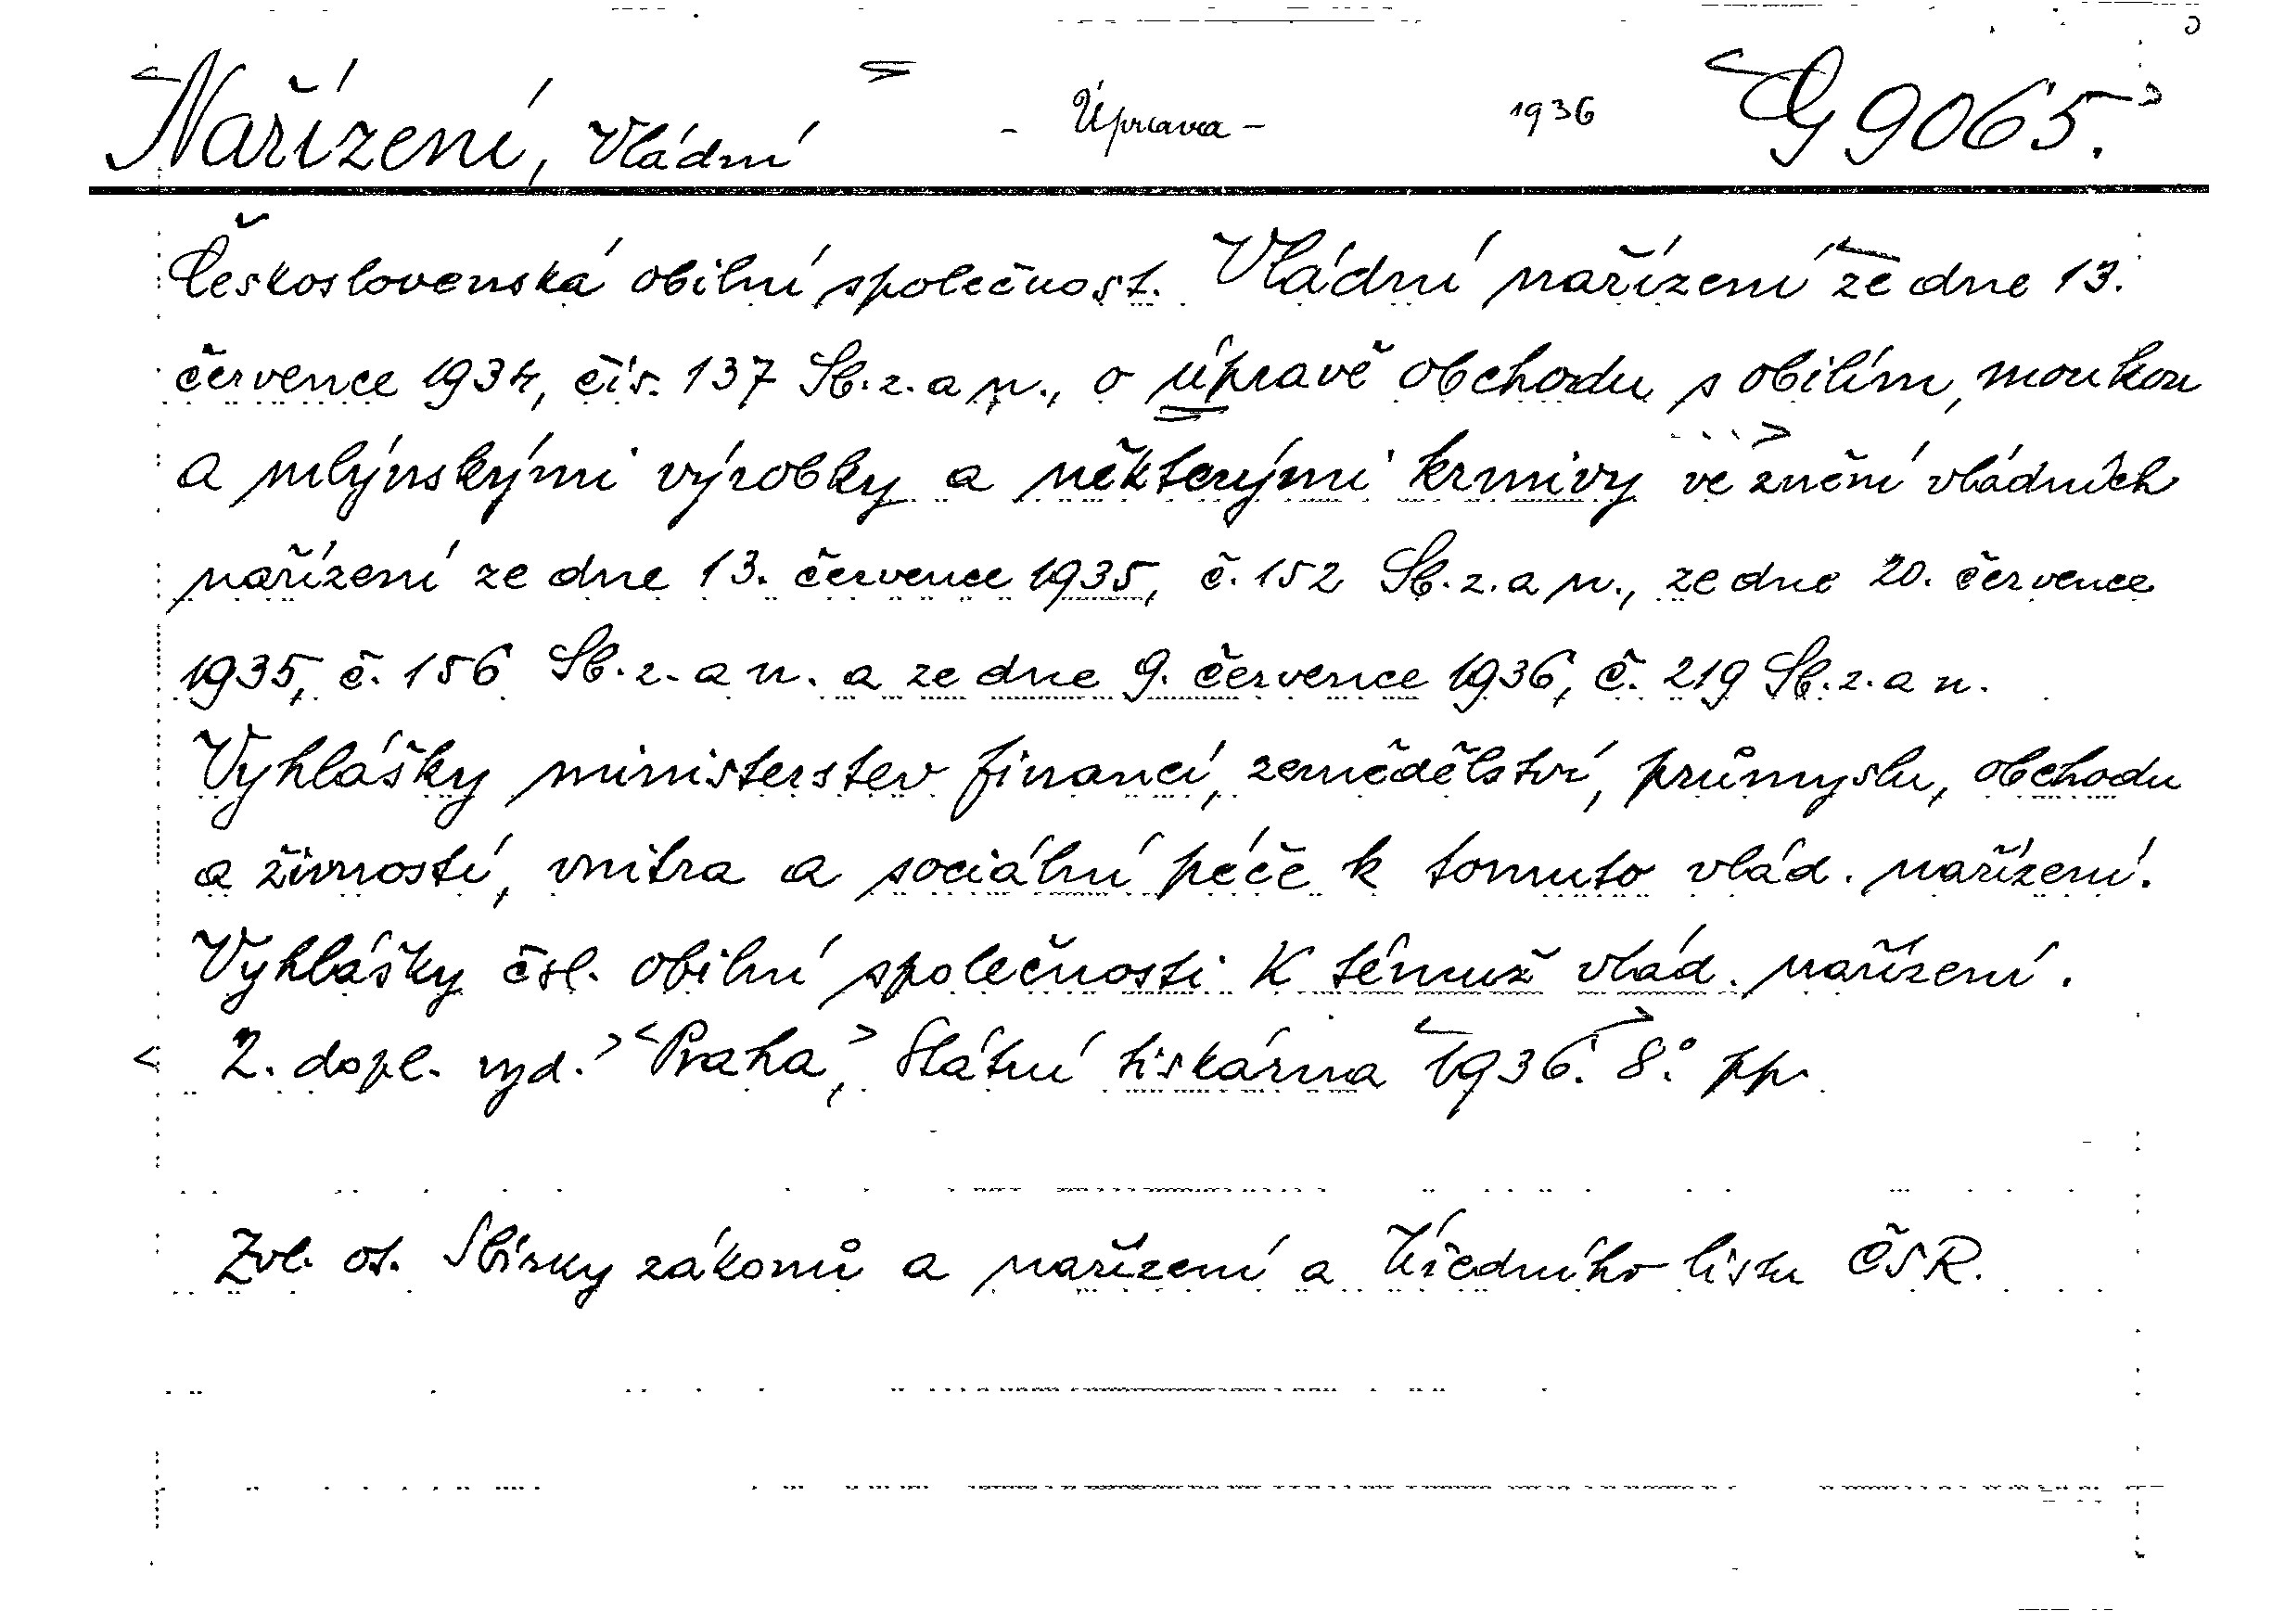 Nařízení, Vládní - Úprava - 1936 G 9065.
Československá obilní společnost. Vládní nařízení ze dne 13.
července 1934, čís. 137 Sb. z. a n., o úpravě obchodu s obilím, moukou
a mlýnskými výrobky a některými krmivy ve znění vládních
nařízení ze dne 13. července 1935, č. 152 Sb. z. a n., ze dne 20. července
1935, č. 156 Sb. z. a n. a ze dne 9. července 1936, č. 219 Sb. z. a n.
Vyhlášky ministerstev financí, zemědělství, průmyslu, obchodu
a živností, vnitra a sociální péče k tomuto vlád. nařízení.
Vyhlášky čsl. obilní společnosti k témuž vlád. nařízení.
2. dopl. vyd. Praha, Státní tiskárna 1936. 8° pp.
Zvl. ot. Sbírky zákonů a nařízení a Úředního listu ČSR.